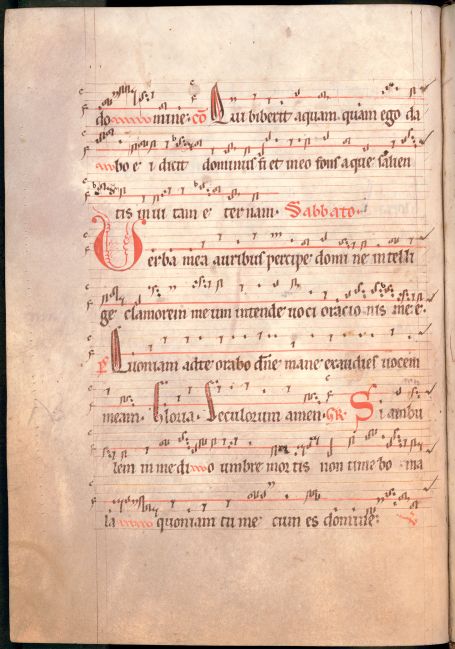 do mine. cō Qui biberit aquam quam ego da
bo e i dicit dominus fi et in eo fons aque salien
tis in ui tam e ternam. Sabbato.
Verba mea auribus percipe domi ne intelli
ge clamorem meum intende uoci oracio nis me e.
p̄ Quoniam ad te orabo dn̄e mane exaudies uocem
meam. Gloria. Seculorum amen. GR. Si ambu
lem in me di o umbre mortis non timebo ma
la quoniam tu me cum es domine.